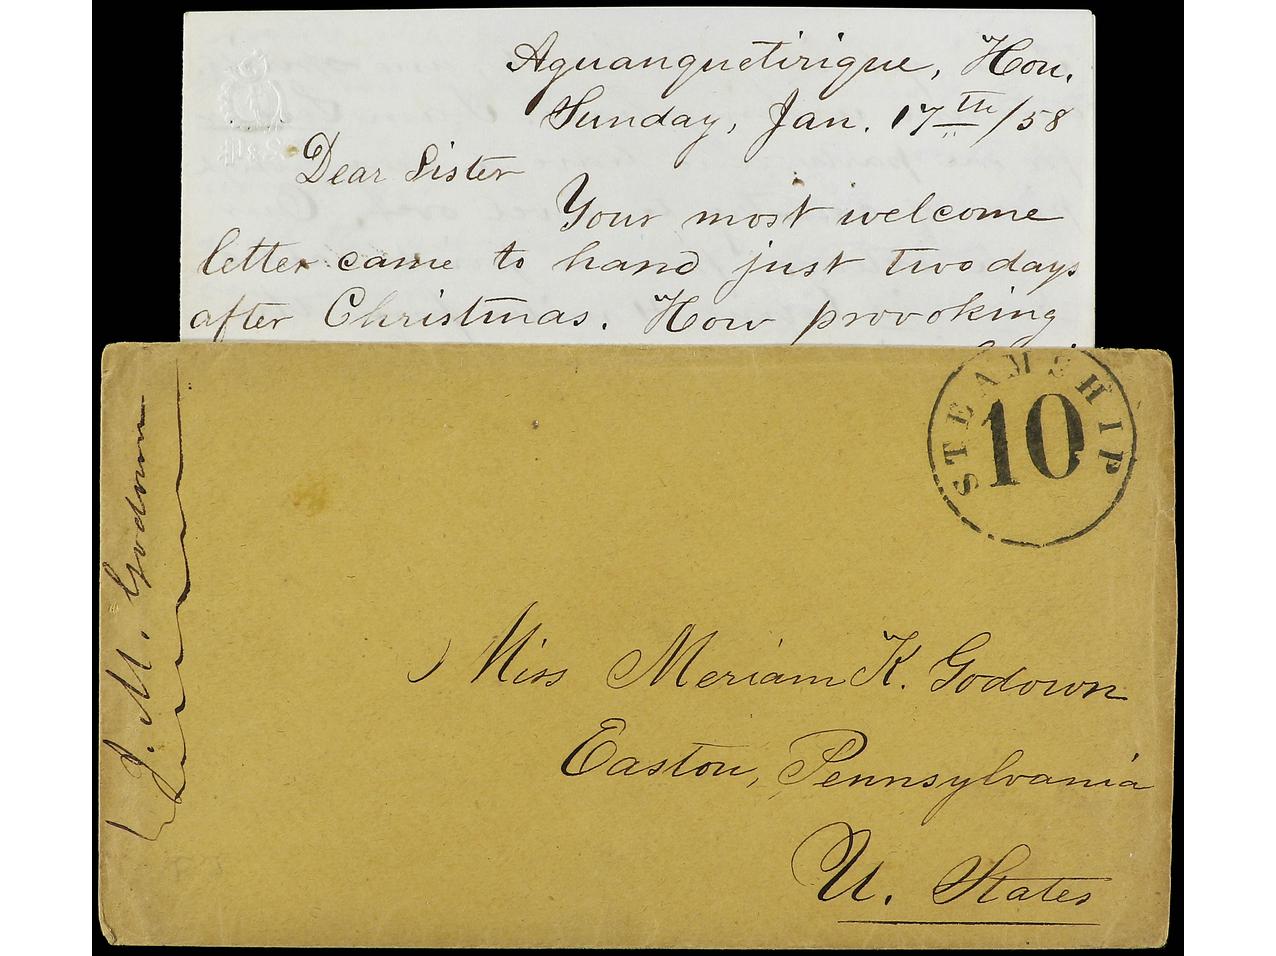 Aguanquetirique, Hon.
Sunday, Jan. 17th/58
Dear Sister
Your most welcome
letter came to hand just two days
after Christmas. How provoking
STEAMSHIP
10
J. M. Godown
Miss Meriam K. Godown
Easton, Pennsylvania
U. States